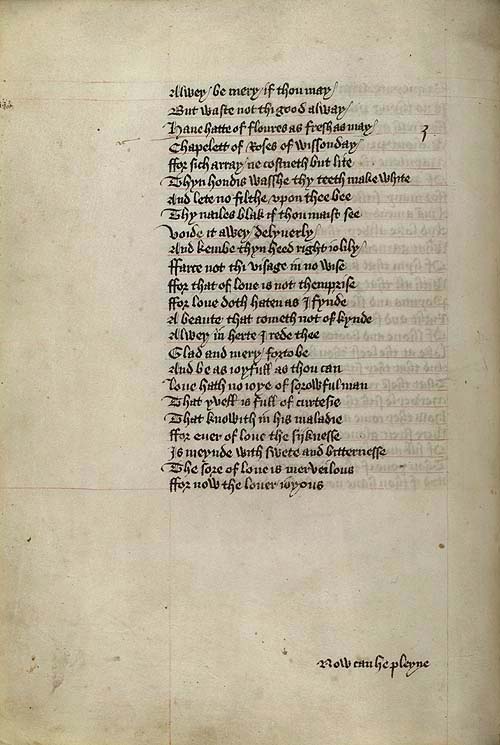 Alwey be mery if thou may
But waste not thi good alway
Haue hatte of floures as fresh as may
Chapelett of Roses of wissonday
ffor sich array ne costneth but lite
Thyn hondis wasshe thy teeth make white
And lete no filthe vpon thee bee
Thy nailes blak if thou maist see
Voide it awey delyuerly
And kembe thyn heed right iolily
ffarce not thi visage in no wise
ffor that of loue is not themprise
ffor loue doth haten as I fynde
A beaute that cometh not of kynde
Alwey in herte I rede thee
Glad and mery forto be
And be as ioyfull as thou can
loue hath no ioye of sorowful man
That yvell is full of curtesie
That knowith in his maladie
ffor euer of loue the sijknesse
Is meynde with swete and bitternesse
The sore of loue is merveilous
ffor now the louer ioyous
Now can he pleyne